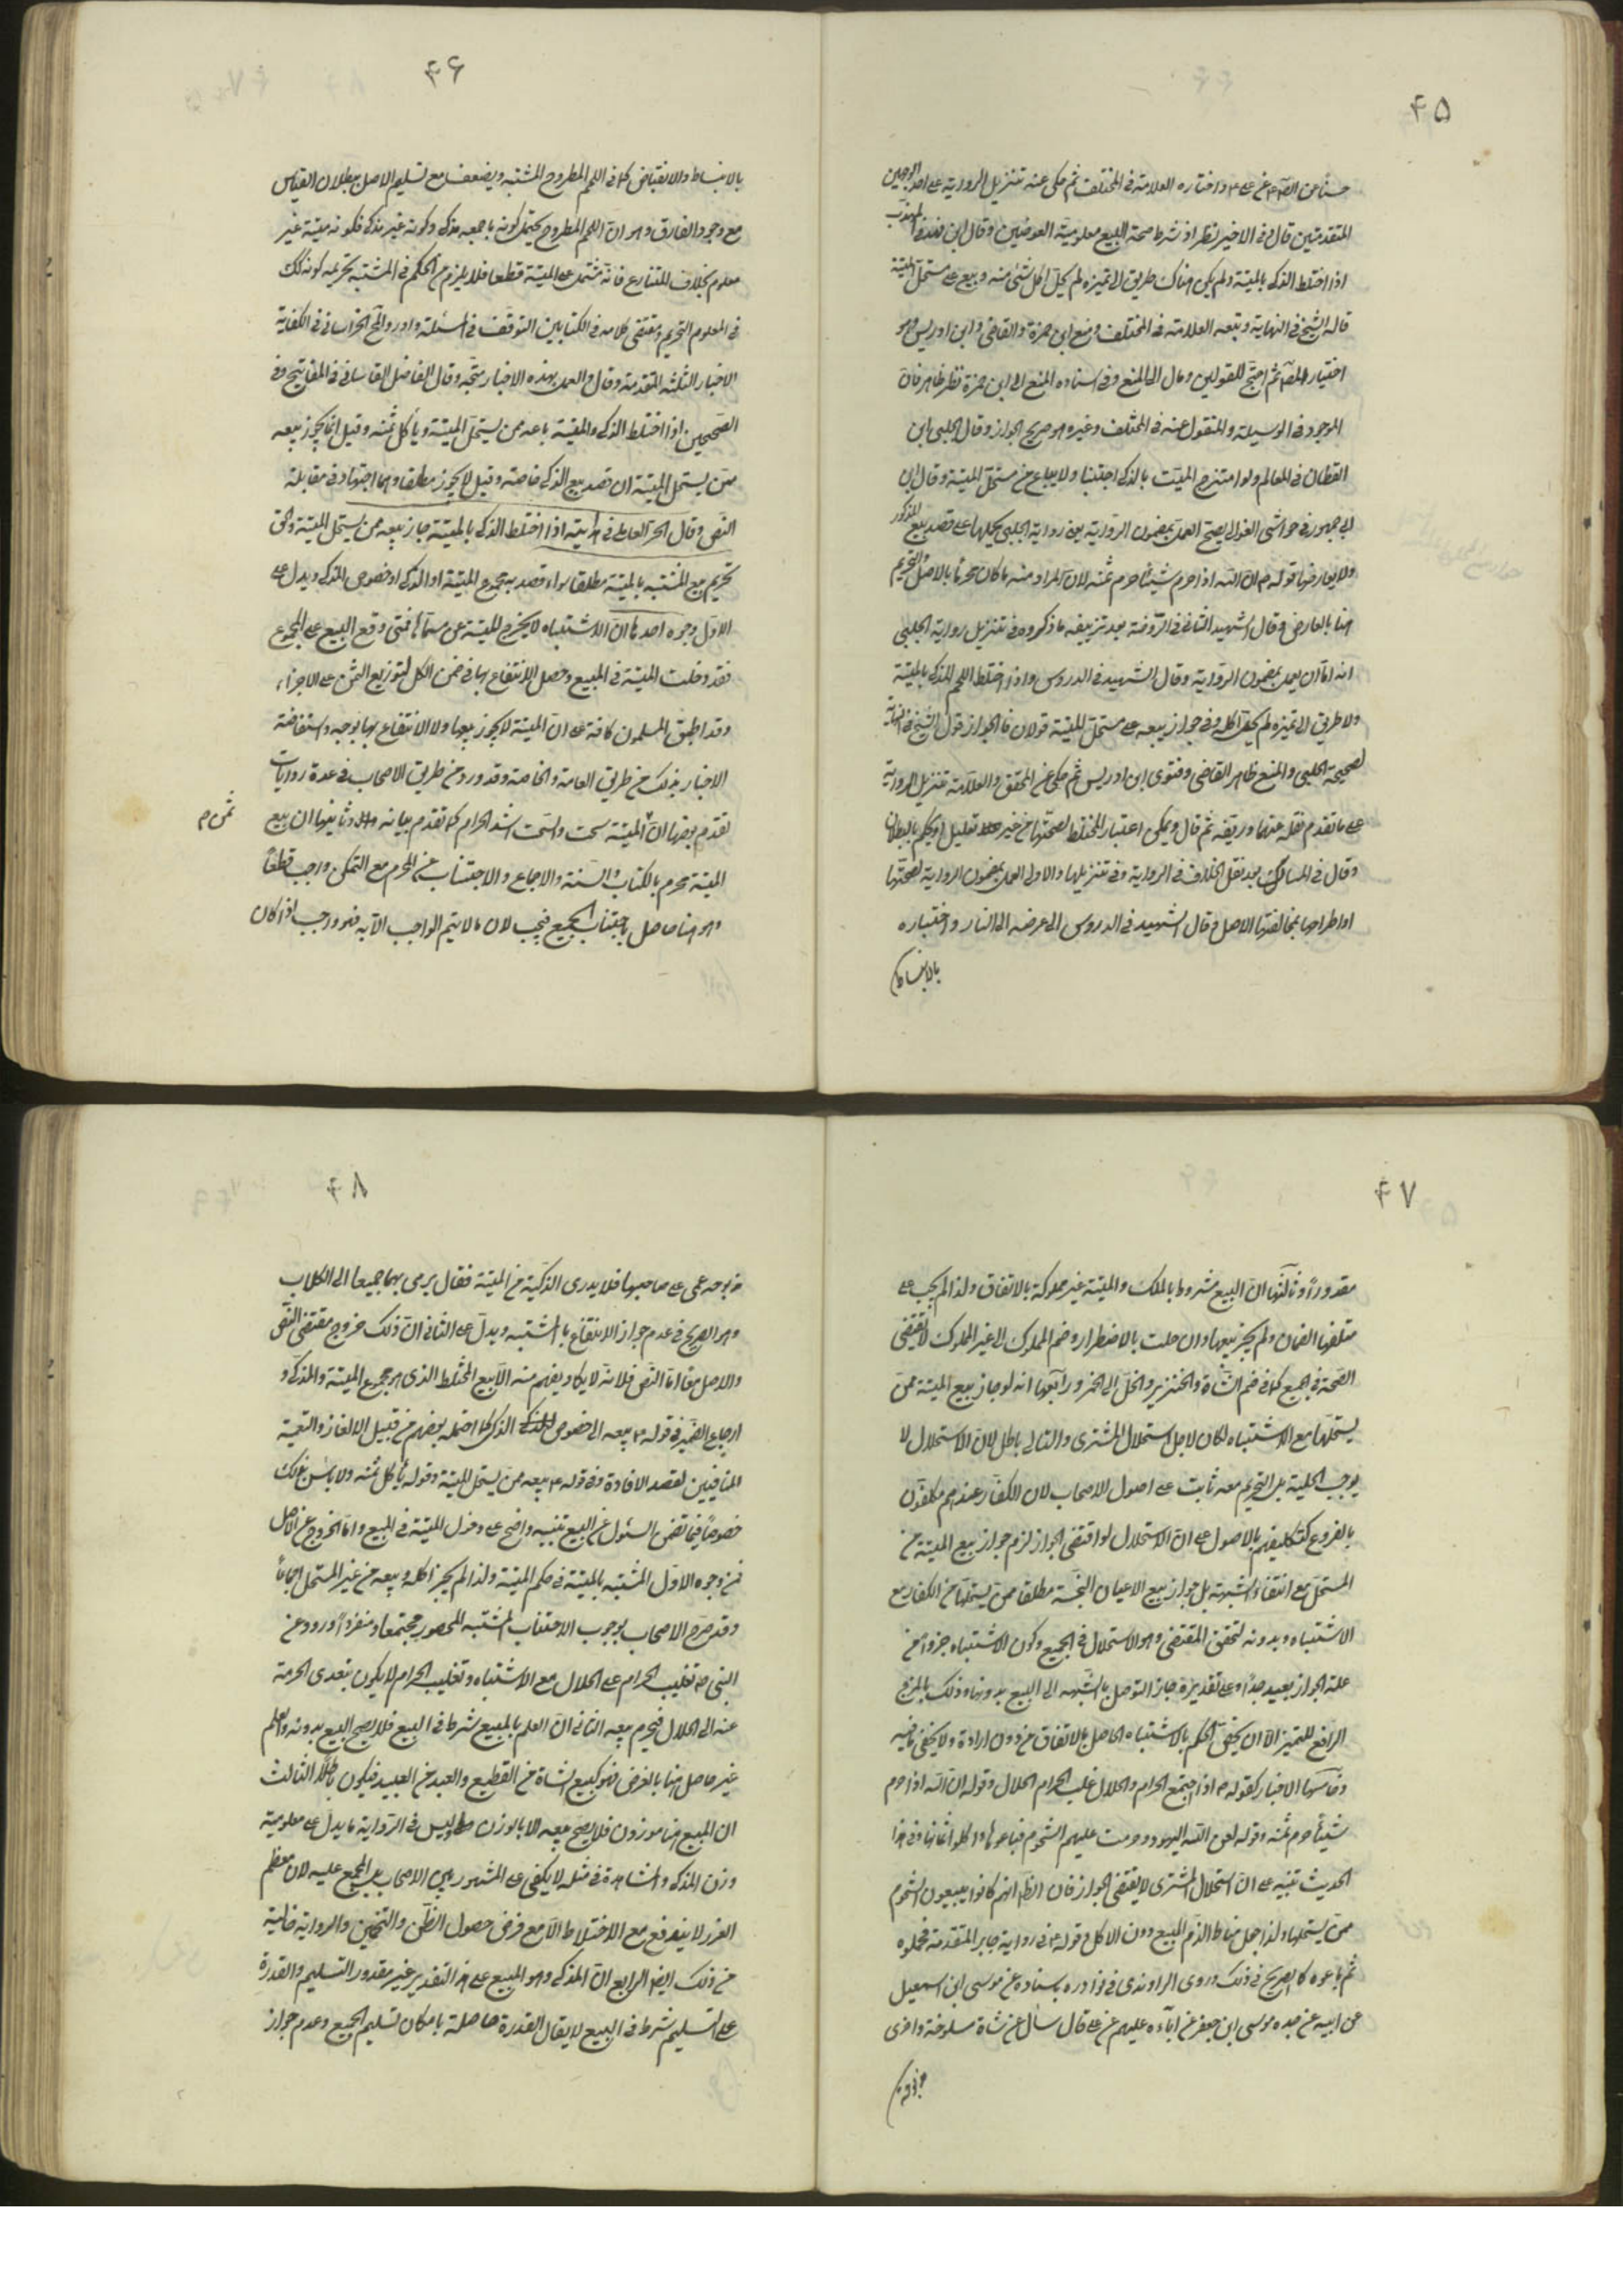 ۴۵
حسنا عن الصادق عن علی ع واختاره العلامة فی المختلف ثم حکی عنه تنزیل الروایة علی احد الوجهین
المتقدمتین قال فی الاخیر نظر اذ شرط صحة البیع معلومیة العوضین وقال ابن فهد فی المهذب
اذا اختلط الذکی بالمیتة ولم یکن هناک طریق الی تمیزه لم یحل اکل شئ منه وبیع علی مستحل المیتة
قاله الشیخ فی النهایة وتبعه العلامة فی المختلف ومنع ابن حمزة والقاضی وابن ادریس وهو
اختیار المص ثم احتج للقولین ومال الی المنع وفی اسناده المنع الی ابن حمزة نظر ظاهر فان
الموجود فی الوسیلة والمنقول عنه فی المختلف وغیره هو صریح الجواز وقال الحلبی ابن
القطان فی المعالم ولو امتزج المیت بالذکی اجتنبا ولا یباع من مستحل المیتة وقال ابن
ابی جمهور فی حواشی الغوالی یصح العمل بمضمون الروایة یعنی روایة الحلبی بحملها علی قصد بیع المذکور
ولا یعارضها قوله ص ان الله اذا حرم شیئا حرم ثمنه لان المراد منه ما کان محرما بالاصل والتحریم
هنا بالعارض وقال الشهید الثانی فی الروضة بعد تزییفه ما ذکروه فی تنزیل روایة الحلبی
انه اما ان یعمل بمضمون الروایة وقال الشهید فی الدروس واذا اختلط اللحم المذکی بالمیتة
ولا طریق الی تمیزه لم یحل اکله وفی جواز بیعه علی مستحل المیتة قولان فالجواز قول الشیخ فی النهایة
لصحیحة الحلبی والمنع ظاهر القاضی وفتوی ابن ادریس ثم حکی عن المحقق والعلامة تنزیل الروایة
علی ما تقدم نقله عنهما وزیفه ثم قال ویمکن اعتبار المختلط لصحتها من غیر تعلیل او یحکم بالبطلان
وقال فی المسالک بعد نقل الخلاف فی الروایة وفی تنزیلها والاولی العمل بمضمون الروایة لصحتها
او اطراحها بمخالفتها الاصل وقال الشهید فی الدروس الی عرضه الی النار واختباره
بالانبساط
۴۶
بالانبساط والانقباض کما فی اللحم المطروح المشتبه ویضعف مع تسلیم الاصل ببطلان القیاس
مع وجود الفارق وهو ان اللحم المطروح یحتمل کونه باجمعه مذکی وکونه غیر مذکی فکونه میتة غیر
معلوم بخلاف المتنازع فانه مشتمل علی المیتة قطعا فلا یلزم من الحکم فی المشتبه تحریمه کونه کذلک
فی المعلوم التحریم ومقتضی کلامه فی الکتابین التوقف فی المسئلة واورد الخراسانی فی الکفایة
الاخبار الثلثة المتقدمة وقال والعمل بهذه الاخبار متجه وقال الفاضل القاسانی فی المفاتیح وفی
الصحیحین اذا اختلط الذکی والمیتة باعه ممن یستحل المیتة ویأکل ثمنه وقیل انما یجوز بیعه
ممن یستحل المیتة ان قصد بیع الذکی خاصة وقیل لا یجوز مطلقا وهما اجتهاد فی مقابلة
النص وقال الحر العاملی فی هدایته اذا اختلط الذکی بالمیتة جاز بیعه ممن یستحل المیتة والحق
تحریم بیع المشتبه بالمیتة مطلقا سواء قصد به مجموع المیتة او الذکی او خصوص المذکی ویدل علی
الاول وجوه احدها ان الاشتباه لا یخرج المیتة عن مسماها فمتی وقع البیع علی المجموع
فقد دخلت المیتة فی المبیع وحصل الانتفاع بها فی ضمن الکل لتوزیع الثمن علی الاجزاء
وقد اطبق المسلمون کافة علی ان المیتة لا یجوز بیعها ولا الانتفاع بها بوجه واستفاضة
الاخبار بذلک من طریق العامة والخاصة وقد ورد من طریق الاصحاب فی عدة روایات
تقدم بعضها ان المیتة سحت والسحت اشد الحرام کما تقدم بیانه وثانیها ان بیع
ثمن م
المیتة محرم بالکتاب والسنة والاجماع والاجتناب عن المحرم مع التمکن واجب قطعا
وهو هنا حاصل باجتناب الجمیع فیجب لان ما لا یتم الواجب الا به فهو واجب اذا کان
۴۷
مقدورا وثالثها ان البیع مشروط بالملک والمیتة غیر مملوکة بالاتفاق ولذا لم یجب علی
متلفها الضمان ولم یجز بیعها وان حلت بالاضطرار وضم المملوک الی غیر المملوک لا یقتضی
الصحة فی الجمیع کما فی ضم الشاة والخنزیر والخل الی الخمر ورابعها انه لو جاز بیع المیتة ممن
یستحلها مع الاشتباه لکان لاجل استحلال المشتری والتالی باطل لان الاستحلال لا
یوجب الحلیة بل التحریم معه ثابت علی اصول الاصحاب لان الکفار عندهم مکلفون
بالفروع کتکلیفهم بالاصول علی ان الاستحلال لو اقتضی الجواز لزم جواز بیع المیتة من
المستحل مع انتفاء الشبهة بل جواز بیع الاعیان النجسة مطلقا ممن یستحلها من الکفار مع
الاشتباه وبدونه لتحقق المقتضی وهو الاستحلال فی الجمیع وکون الاشتباه جزوا من
علة الجواز بعید جدا وعلی تقدیره جاز التوصل بالشبهه الی البیع بدونها وذلک بالمزج
الرافع للتمیز الا ان یختص الحکم بالاشتباه الحاصل بالاتفاق من دون ارادة ولا یخفی ما فیه
وخامسها الاخبار کقوله ص اذا اجتمع الحرام والحلال غلب الحرام الحلال وقوله ان الله اذا حرم
شیئا حرم ثمنه وقوله لعن الله الیهود حرمت علیهم الشحوم فباعوها واکلوا اثمانها وفی هذا
الحدیث تنبیه علی ان استحلال المشتری لا یقتضی الجواز فان الظ انهم کانوا یبیعون الشحوم
ممن یستحلها ولذا جعل مناط الذم البیع دون الاکل وقوله ع فی روایة جابر المتقدمة فجملوه
ثم باعوه کالصریح فی ذلک وروی الراوندی فی نوادره باسناده عن موسی ابن اسمعیل
عن ابیه عن جده موسی ابن جعفر عن آبائه علیهم عن علی قال سأل عن شاة مسلوخة واخری
مذبوحة
۴۸
مذبوحه عمی علی صاحبها فلا یدری الذکیة من المیتة فقال یرمی بهما جمیعا الی الکلاب
وهو الصریح فی عدم جواز الانتفاع بالمشتبه ویدل علی الثانی ان ذلک خروج مقتضی النص
والاصل معا اما النص فلانه لا یکاد یفهم منه الا بیع المختلط الذی هو مجموع المیتة والمذکی و
ارجاع الضمیر فی قوله ع بیعه الی خصوص الذکی کما احتمله بعضهم من قبیل الالغاز والتعمیة
المنافیین لقصد الافادة وفی قوله ع بیعه ممن یستحل المیتة وقوله یأکل ثمنه ولا بأس بذلک
خصوصا فیما تضمن السئول عن البیع تنبیه واضح علی دخول المیتة فی المبیع واما الخروج عن الاصل
فمن وجوه الاول المشتبه بالمیتة فی حکم المیتة ولذا لم یجز اکله وبیعه من غیر المستحل اجماعا
وقد صرح الاصحاب بوجوب الاجتناب المشتبه المحصور مجتمعا ومنفردا وورود عن
النبی ص تغلیب الحرام علی الحلال مع الاشتباه وتغلیب الحرام لا یکون بتعدی الحرمة
عنه الی الحلال فیحرم بیعه الثانی ان العلم بالمبیع شرط فی البیع فلا یصح البیع بدونه والعلم
غیر حاصل هنا بالفرض فهو کبیع الشاة من القطیع والعبد من العبید فیکون باطلا الثالث
ان المبیع هنا موزون فلا یصح بیعه الا بالوزن ولیس فی الروایة ما یدل علی معلومیة
وزن المذکی والمشاهدة فی مثله لا یکفی علی المشهور بین الاصحاب بل المجمع علیه لان معظم
الغرر لا یندفع مع الاختلاط الا مع فرض حصول الظن والتخمین والروایة خالیة
من ذلک ایضا الرابع ان المذکی وهو المبیع علی هذا التقدیر غیر مقدور التسلیم والقدرة
علی التسلیم شرط فی البیع لا یقال القدرة حاصلة بامکان تسلیم الجمیع وعدم جواز